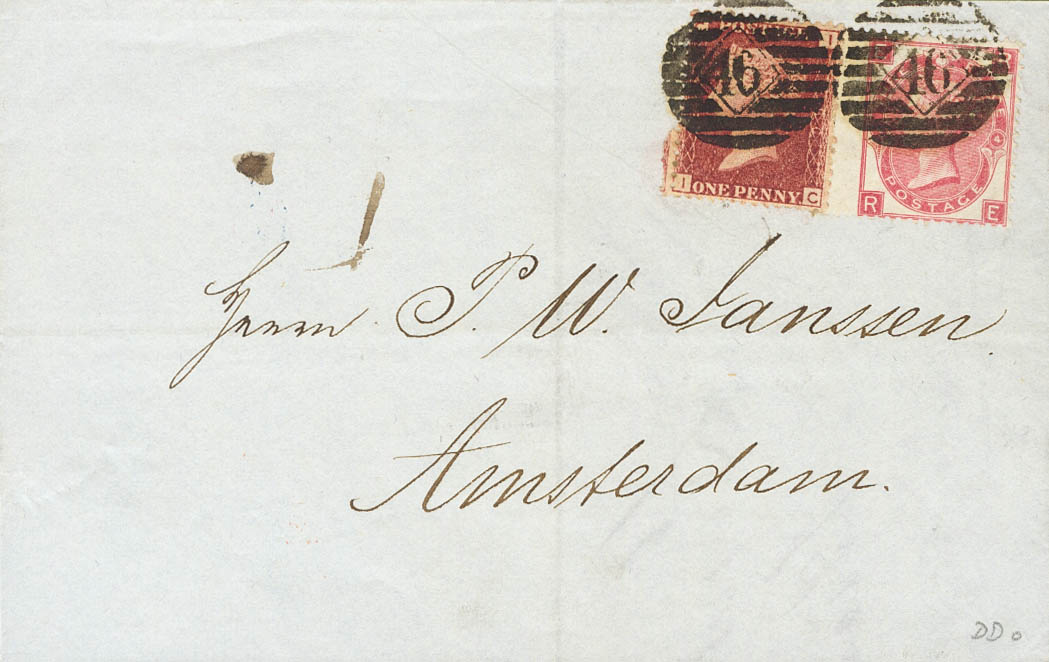 POSTAGE I
46 46
I ONE PENNY. C
4
POSTAGE
R E
Herrn P. W. Janssen.
Amsterdam.
DD